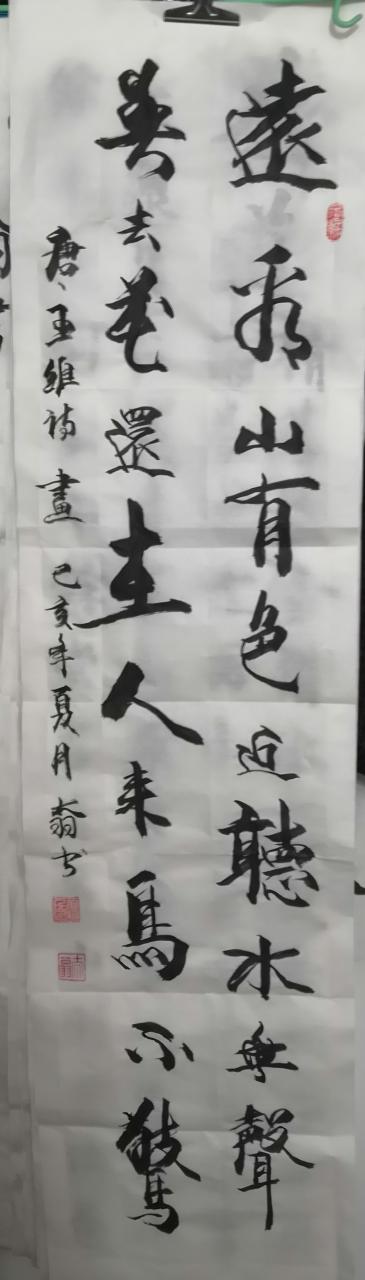 遠看山有色近聽水無聲
春去花還在人来鳥不驚
唐、王維詩畫己亥年夏月翁书